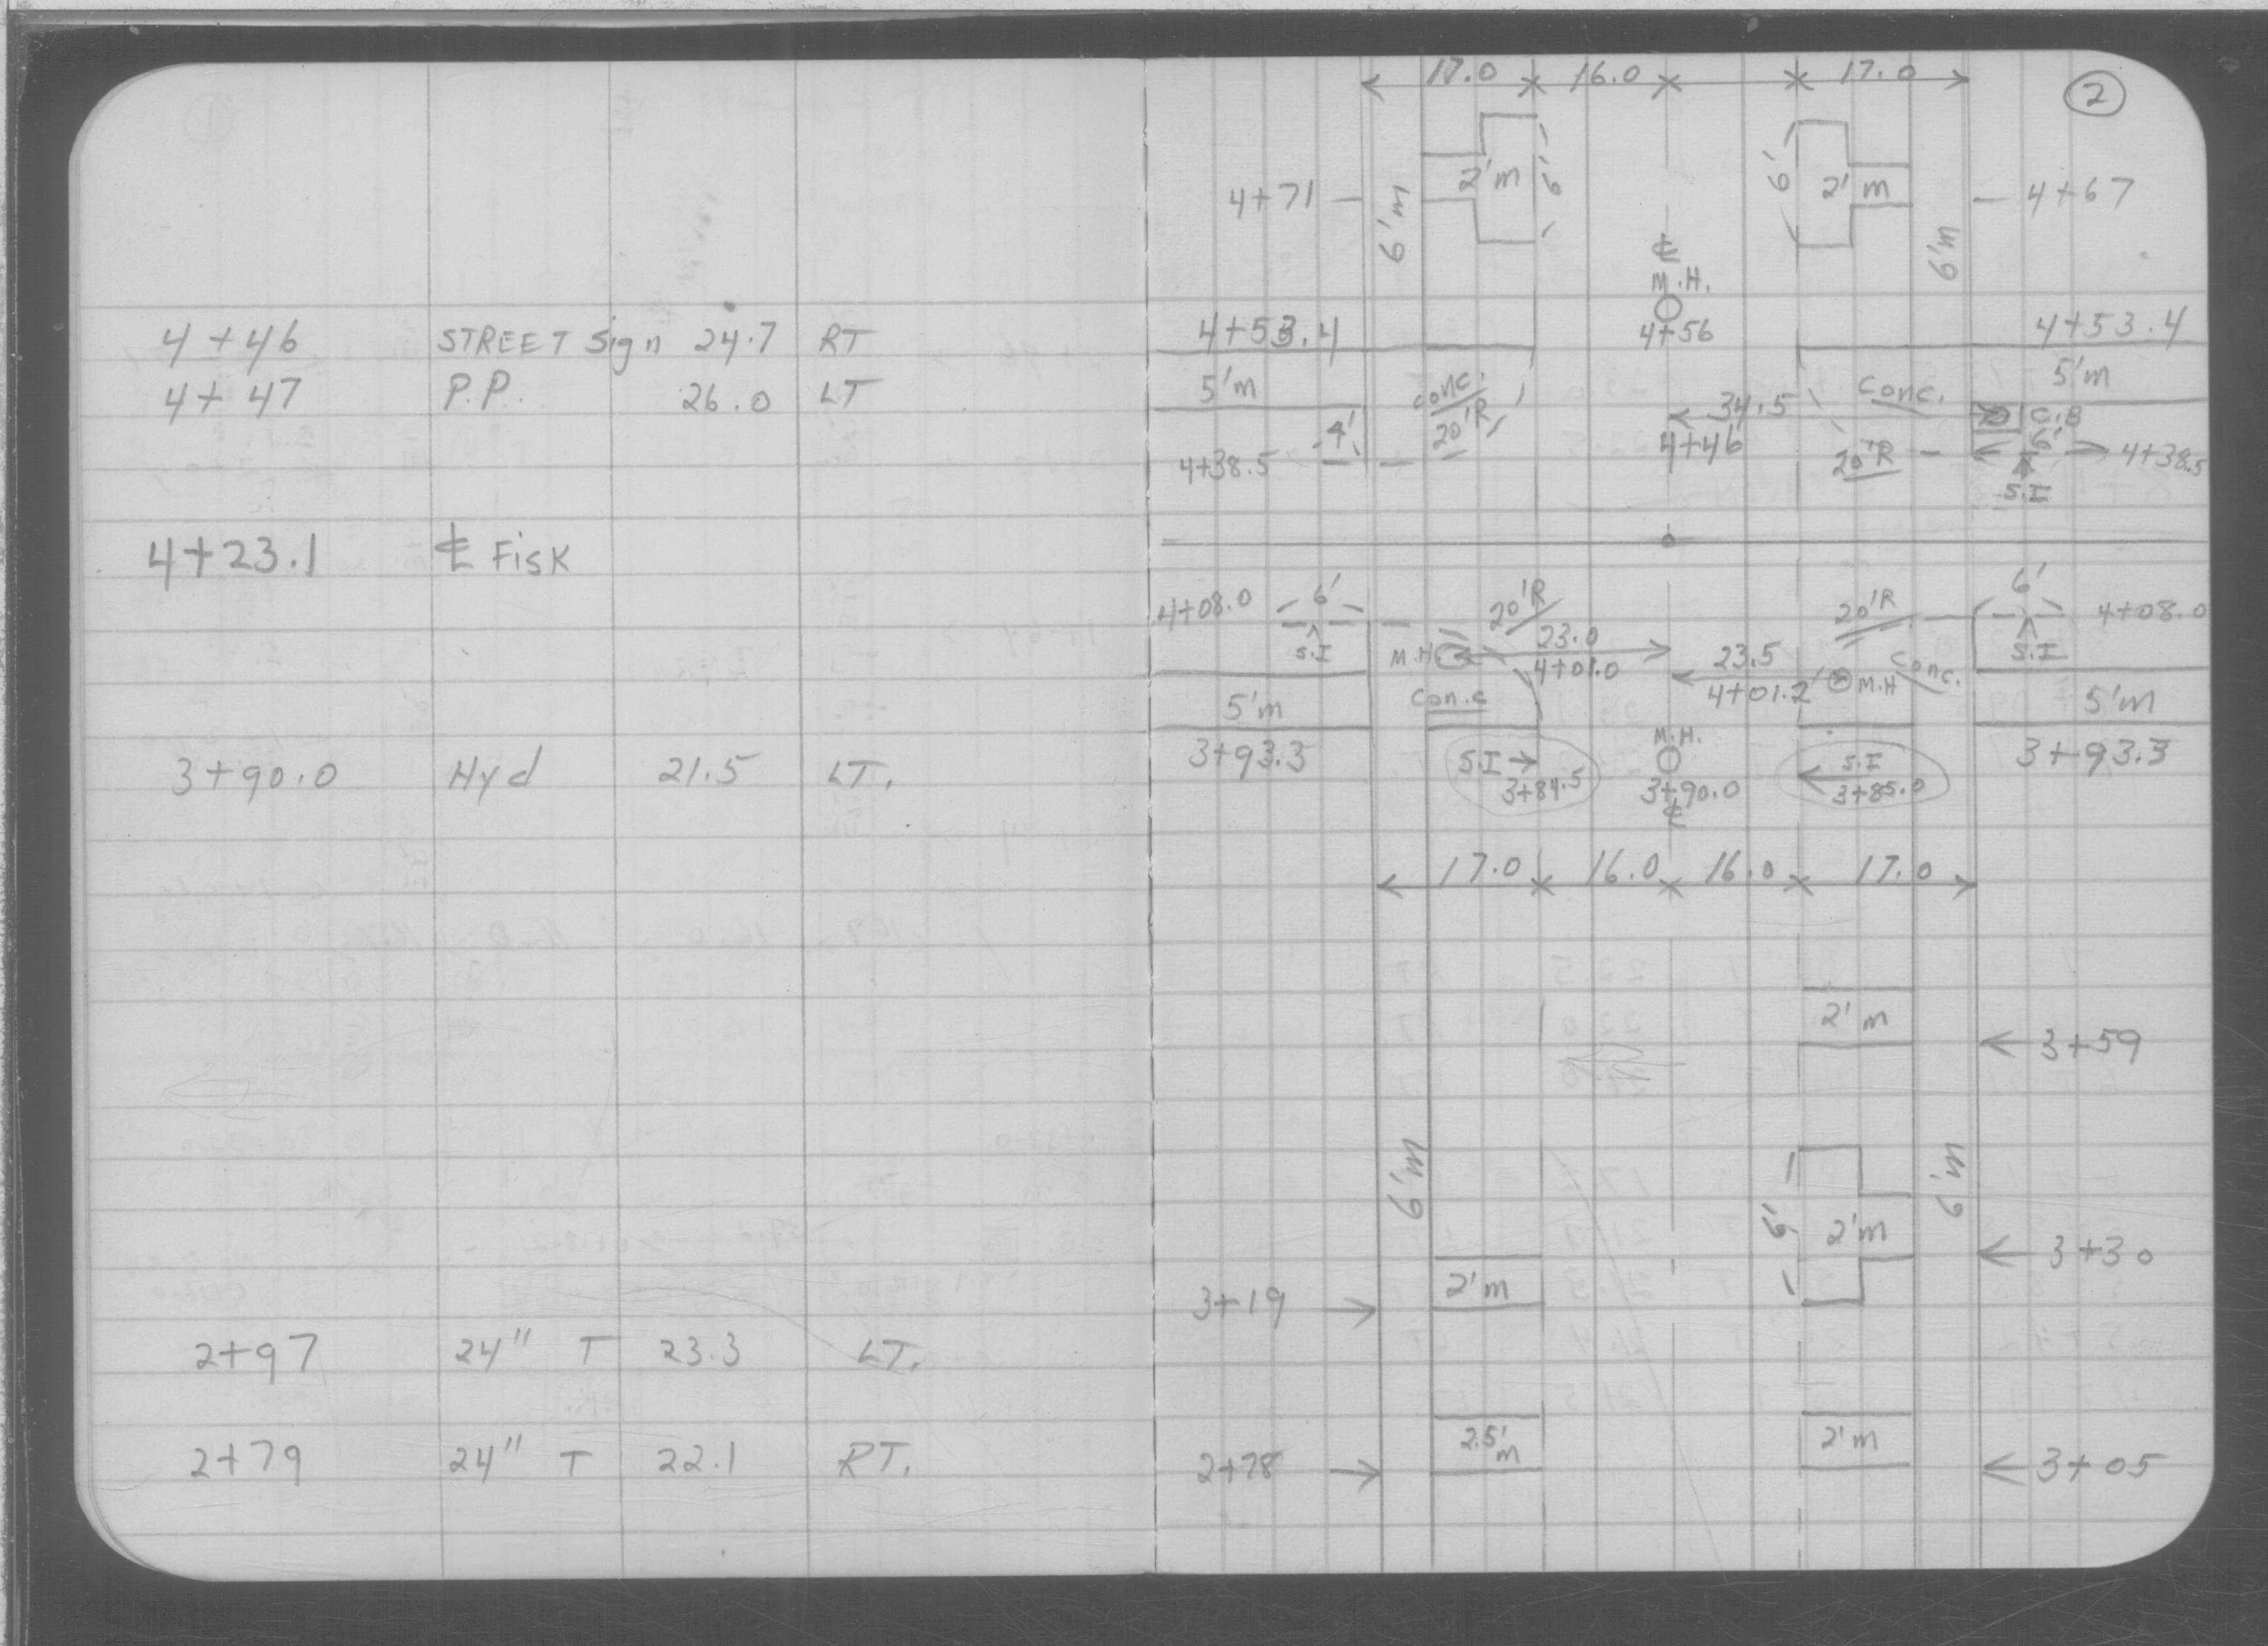 4+46 STREET Sign 24.7 RT
4+47 P.P. 26.0 LT
4+23.1 ℄ Fisk
3+90.0 Hyd 21.5 LT.
2+97 24" T 23.3 LT.
2+79 24" T 22.1 RT.
17.0 16.0 17.0
2
4+71 6'm 2'm 6' 6' 2'm 6'm 4+67
℄
M.H.
4+56
4+53.4 4+53.4
5'm conc. Conc. 5'm
20'R 34.5 C.B
4' 4+46 20'R 6'
4+38.5 4+38.5
S.I
4+08.0 6' 20'R 20'R 6' 4+08.0
S.I M.H. 23.0 23.5 S.I
4+01.0 4+01.2 M.H Conc.
5'm Con.c 5'm
3+93.3 S.I M.H. S.I 3+93.3
3+84.5 3+90.0 3+85.0
℄
17.0 16.0 16.0 17.0
2'm
3+59
6'm 6' 2'm 6'm
3+30
3+19 2'm
2+78 2.5'm 2'm 3+05